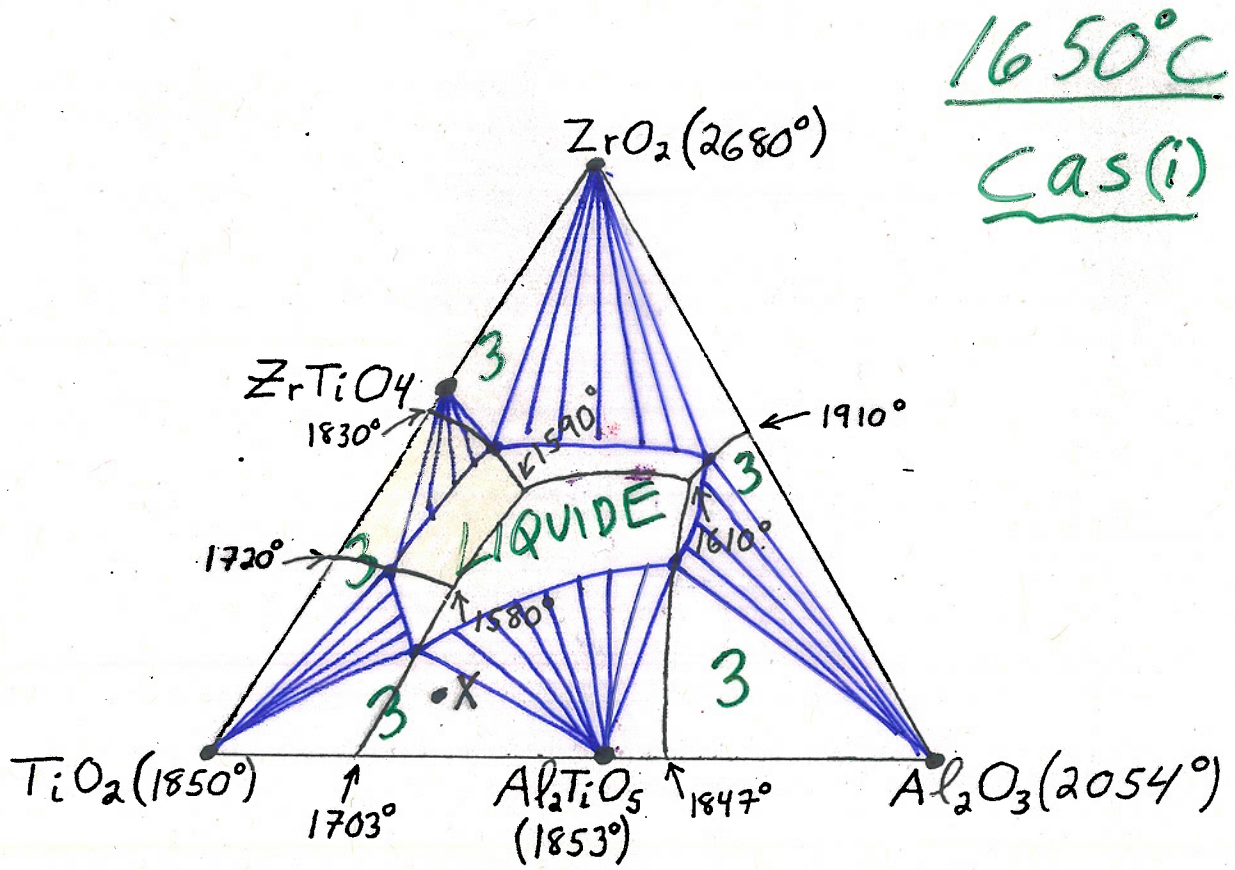 1650°C
cas(i)
ZrO2(2680°)
3
ZrTiO4
1830°
1590°
1910°
3
LIQUIDE
1610°
1720°
3
1580°
3
X
3
TiO2(1850°)
Al2TiO5
(1853°)
1703°
1847°
Al2O3(2054°)